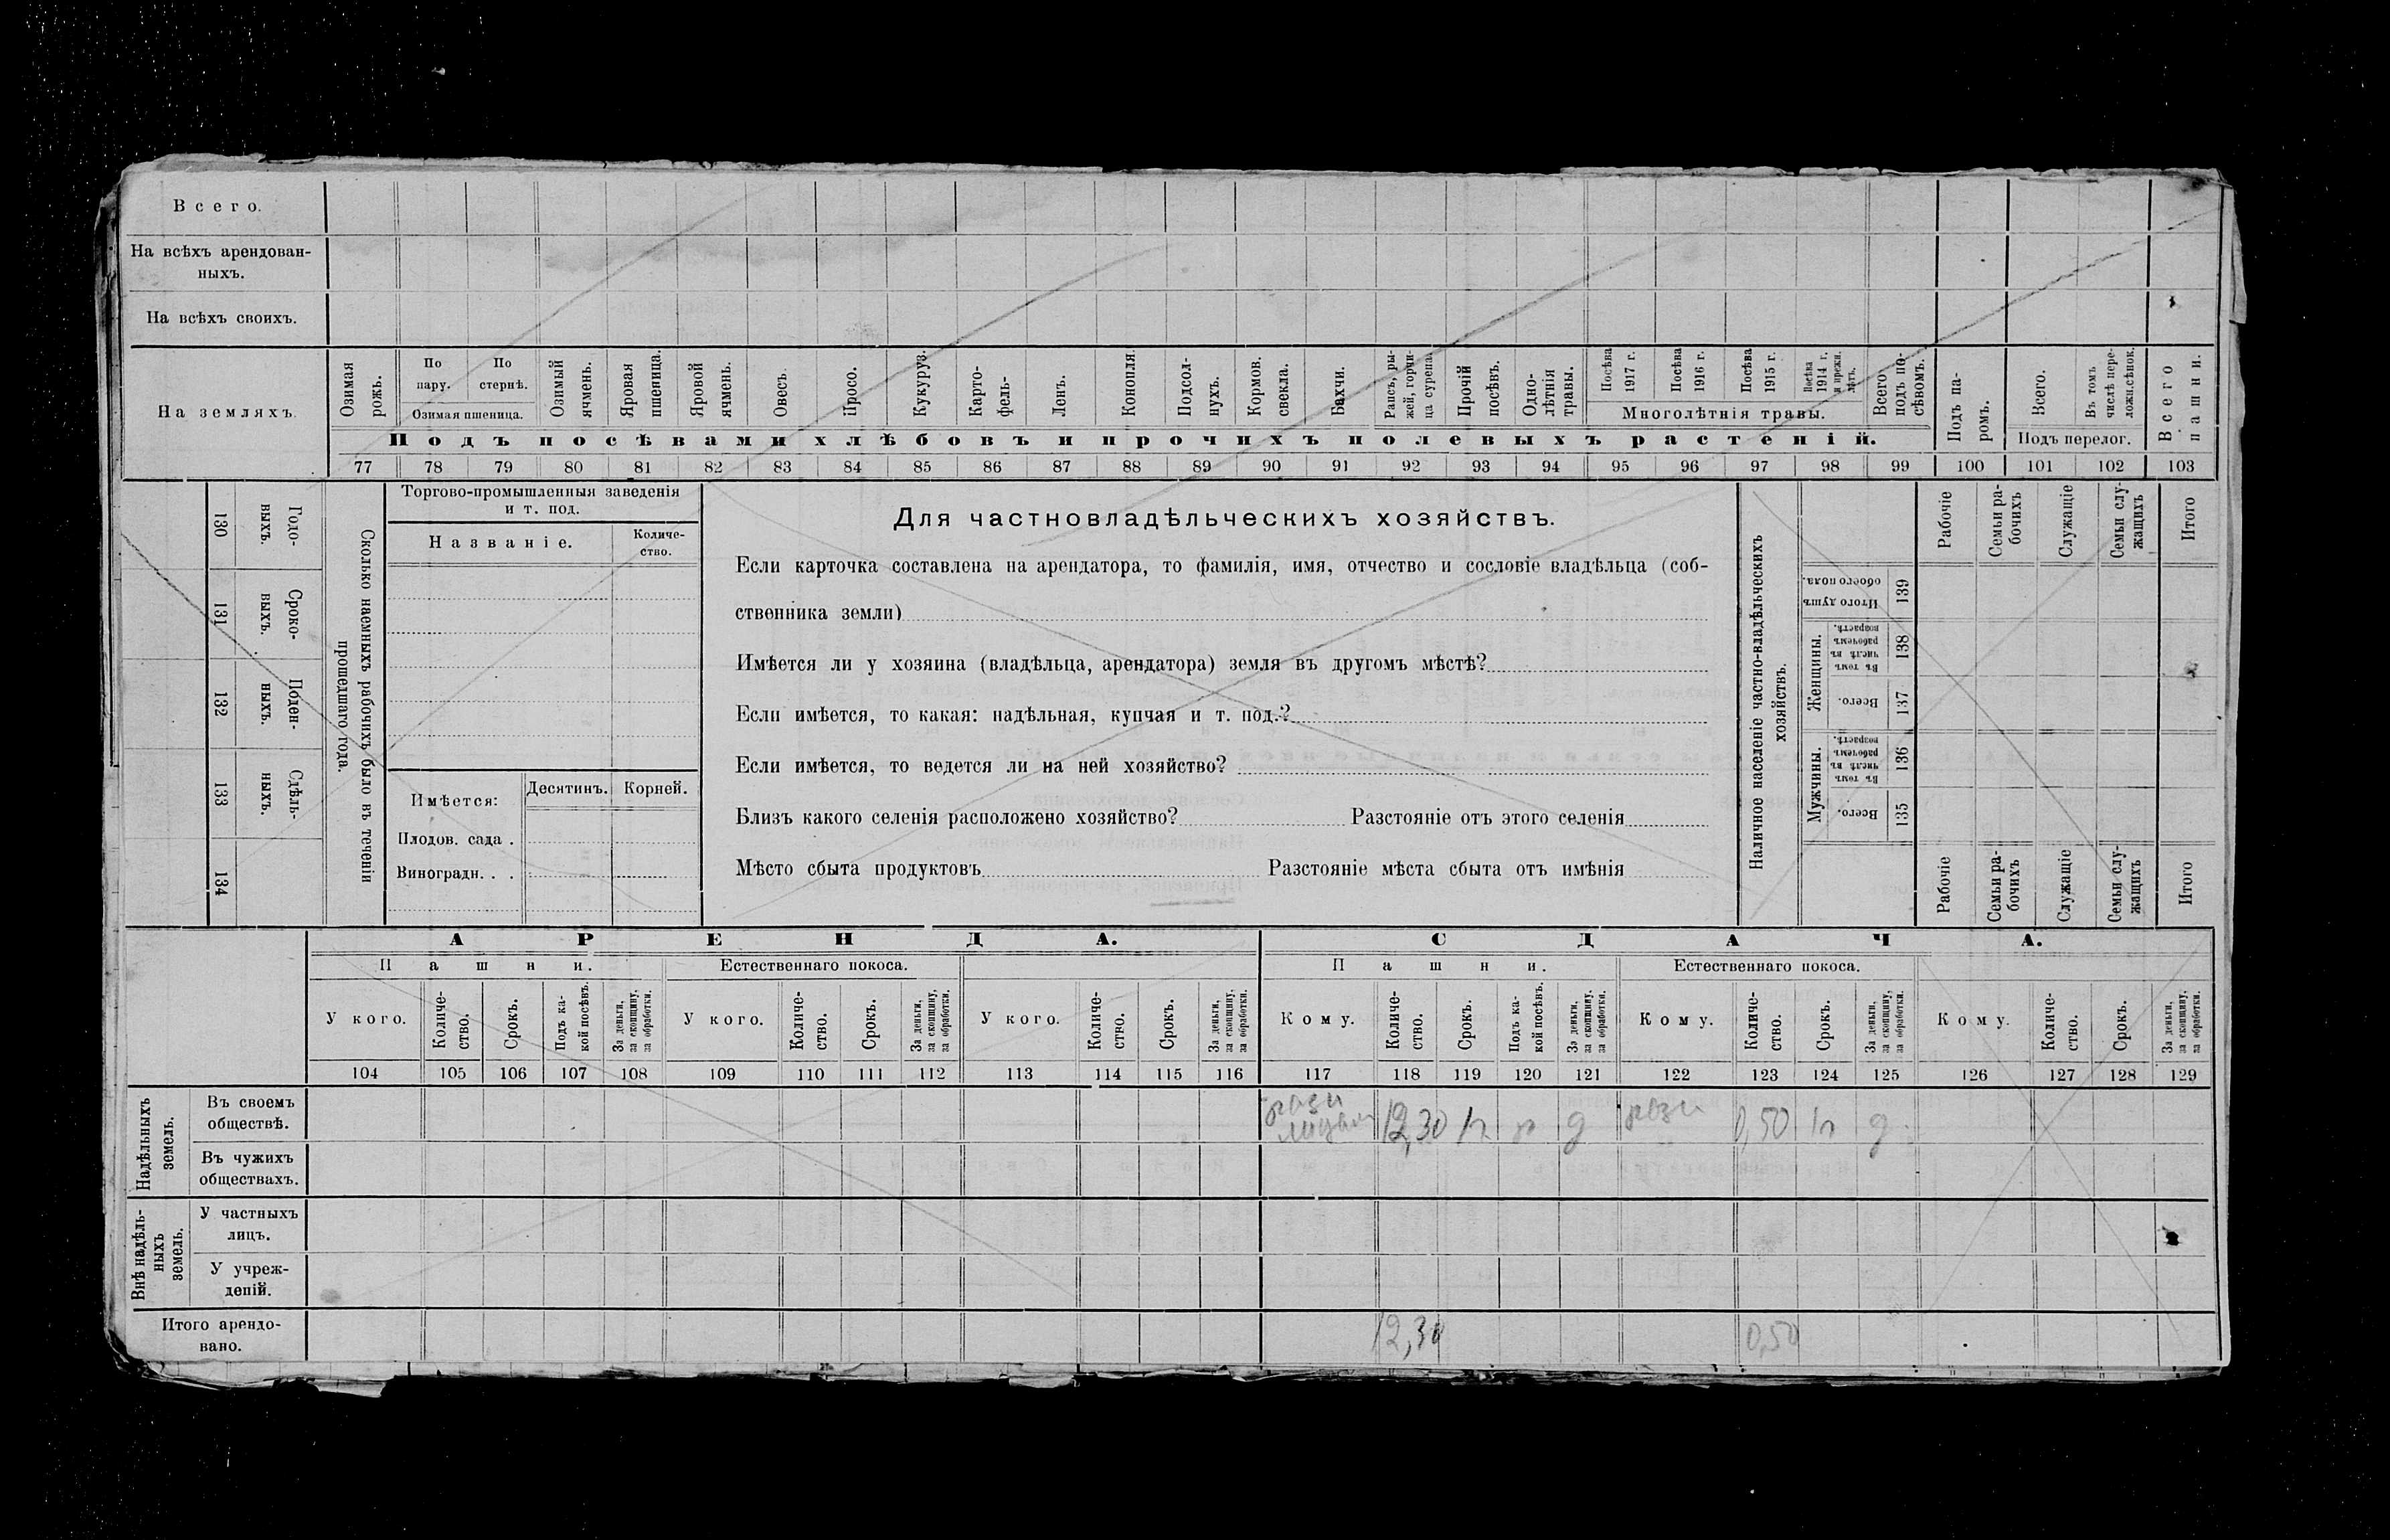 Всего.
На всѣхъ арендован-
ныхъ.
На всѣхъ своихъ.
На земляхъ.
Озимая
рожь.
По
пару.
По
стернѣ.
Озимая пшеница.
Озимый
ячмень.
Яровая
пшеница.
Яровой
ячмень.
Овесъ.
Просо.
Кукуруз.
Карто-
фель-
Ленъ.
Конопля.
Подсол-
нухъ.
Кормов.
свекла.
Бахчи.
Рапсъ, ры-
жей, горчи-
ца сурепа.
Прочій
посѣвъ.
Одно-
лѣтнія
травы.
Посѣва
1917 г.
Посѣва
1916 г.
Посѣва
1915 г.
Посѣва
1914 г.
и прежн.
лѣтъ.
Многолѣтнія травы.
Всего
подъ по-
сѣвомъ.
Подъ па-
ромъ.
Всего.
Въ томъ
числѣ пере-
ложн.сѣнок.
Подъ перелог.
Всего
пашни.
Подъ посѣвами хлѣбовъ и прочихъ полевыхъ растеній.
77 78 79 80 81 82 83 84 85 86 87 88 89 90 91 92 93 94 95 96 97 98 99 100 101 102 103
130
Годо-
выхъ.
131
Сроко-
выхъ.
132
Поден-
ныхъ.
133
Сдѣль-
ныхъ.
134
Сколько наемныхъ рабочихъ было въ теченіи
прошедшаго года.
Торгово-промышленныя заведенія
и т. под.
Названіе.
Количе-
ство.
Имѣется:
Десятинъ.
Корней.
Плодов. сада .
Виноградн. . .
Для частновладѣльческихъ хозяйствъ.
Если карточка составлена на арендатора, то фамилія, имя, отчество и сословіе владѣльца (соб-
ственника земли)
Имѣется ли у хозяина (владѣльца, арендатора) земля въ другомъ мѣстѣ?
Если имѣется, то какая: надѣльная, купчая и т. под.?
Если имѣется, то ведется ли на ней хозяйство?
Близъ какого селенія расположено хозяйство? Разстояніе отъ этого селенія
Мѣсто сбыта продуктовъ Разстояніе мѣста сбыта отъ имѣнія
Наличное населеніе частно-владѣльческихъ
хозяйствъ.
Рабочіе
Семьи ра-
бочихъ
Служащіе
Семьи слу-
жащихъ
Итого
Итого душъ
обоего пола.
139
Женщины.
Въ томъ
числѣ въ
рабочемъ
возрастѣ.
138
Всего.
137
Мужчины.
Въ томъ
числѣ въ
рабочемъ
возрастѣ.
136
Всего.
135
Рабочіе
Семьи ра-
бочихъ
Служащіе
Семьи слу-
жащихъ
Итого
АРЕНДА.
СДАЧА.
Пашни.
Естественнаго покоса.
Пашни.
Естественнаго покоса.
У кого.
Количе-
ство.
Срокъ.
Подъ ка-
кой посѣвъ.
За деньги,
за скопщину,
за обработки.
У кого.
Количе-
ство.
Срокъ.
За деньги,
за скопщину,
за обработки.
У кого.
Количе-
ство.
Срокъ.
За деньги,
за скопщину,
за обработки.
Кому.
Количе-
ство.
Срокъ.
Подъ ка-
кой посѣвъ.
За деньги,
за скопщину,
за обработки.
Кому.
Количе-
ство.
Срокъ.
За деньги,
за скопщину,
за обработки.
Кому.
Количе-
ство.
Срокъ.
За деньги,
за скопщину,
за обработки.
104 105 106 107 108 109 110 111 112 113 114 115 116 117 118 119 120 121 122 123 124 125 126 127 128 129
Надѣльныхъ
земель.
Въ своемъ
обществѣ.
12,30 д 0,50 д
Въ чужихъ
обществахъ.
Внѣ надѣль-
ныхъ
земель.
У частныхъ
лицъ.
У учреж-
деній.
Итого арендо-
вано.
12,30 0,50